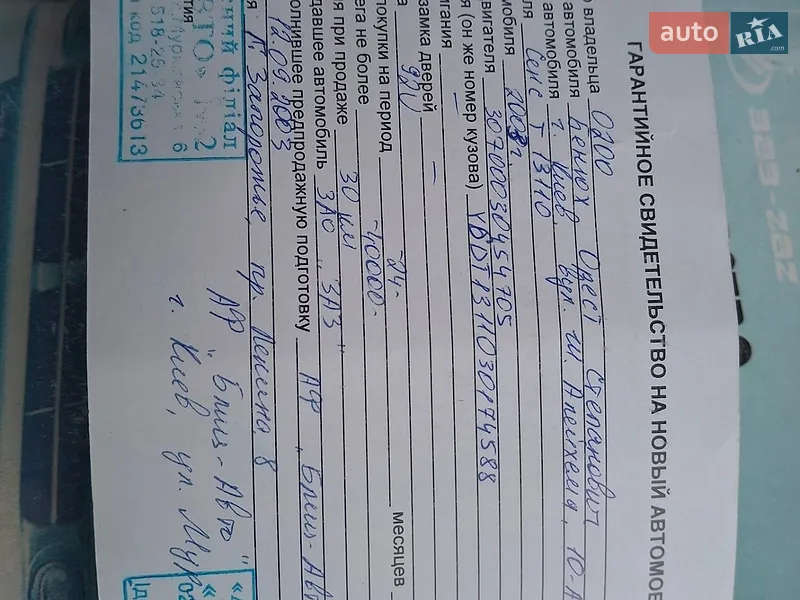 auto RIA .com
ГАРАНТИЙНОЕ СВИДЕТЕЛЬСТВО НА НОВЫЙ АВТОМОБ
0200
владельца Орест Степанович
автомобиля г. Киев, вул. Ш. Алейхема, 10-А
автомобиля Сенс Т13110
мобиля 2003г.
двигателя 30700030454705
я (он же номер кузова) Y6DT1311030174588
игания —
замка дверей 920
а
покупки на период -24- месяцев
ега не более -40000-
я при продаже 30 км
давшее автомобиль ЗАО "ЗАЗ"
олнившее предпродажную подготовку АФ "Блиц-Авт
12.09.2003
г. Запорожье, пр. Ленина 8
АФ "Блиц-Авто"
г. Киев, ул. Мур
ний філіал
518-25-34
код 21473613